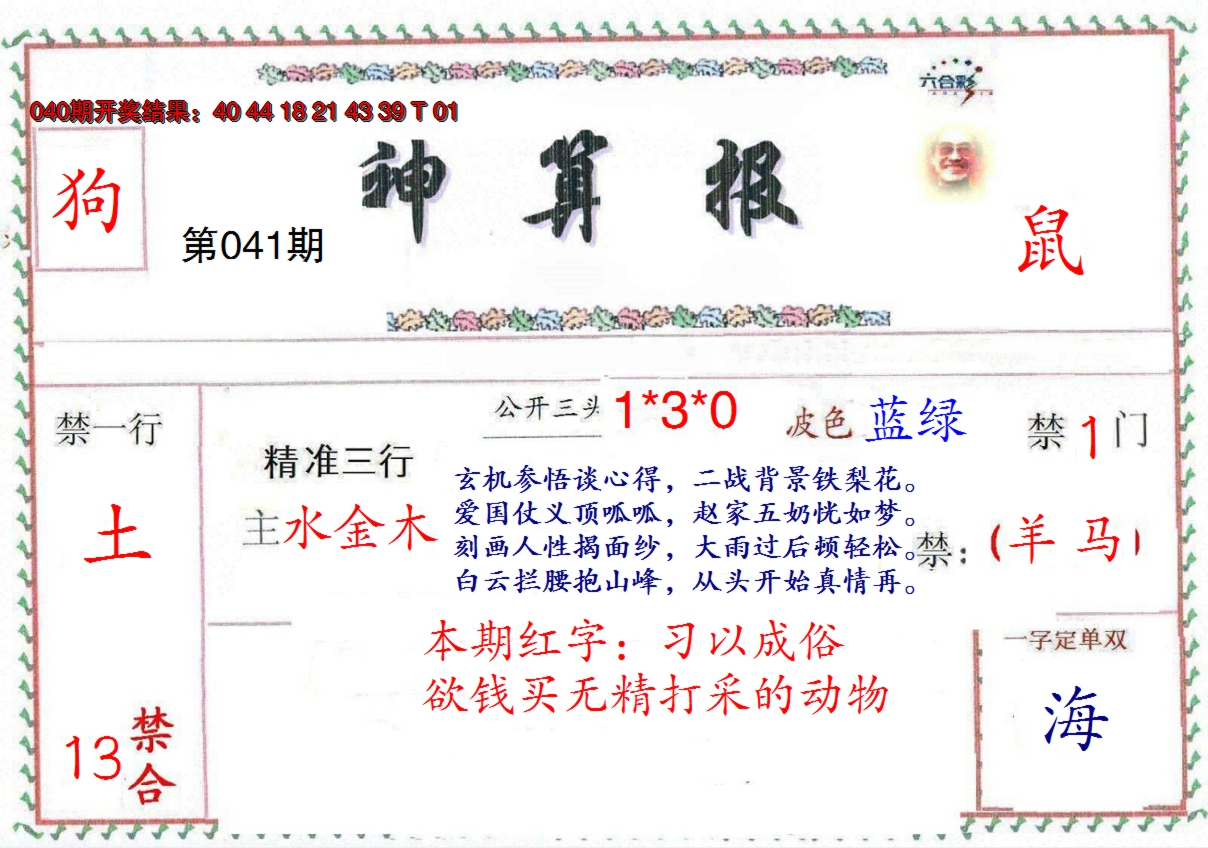 六合彩
040期开奖结果：40 44 18 21 43 39 T 01
狗
第041期
神算报
鼠
禁一行
土
13
禁合
精准三行
主水金木
公开三头 1*3*0
波色 蓝绿
禁1门
玄机参悟谈心得，二战背景铁梨花。
爱国仗义顶呱呱，赵家五奶恍如梦。
刻画人性揭面纱，大雨过后顿轻松。
白云拦腰抱山峰，从头开始真情再。
禁：（羊 马）
本期红字：习以成俗
欲钱买无精打采的动物
一字定单双
海